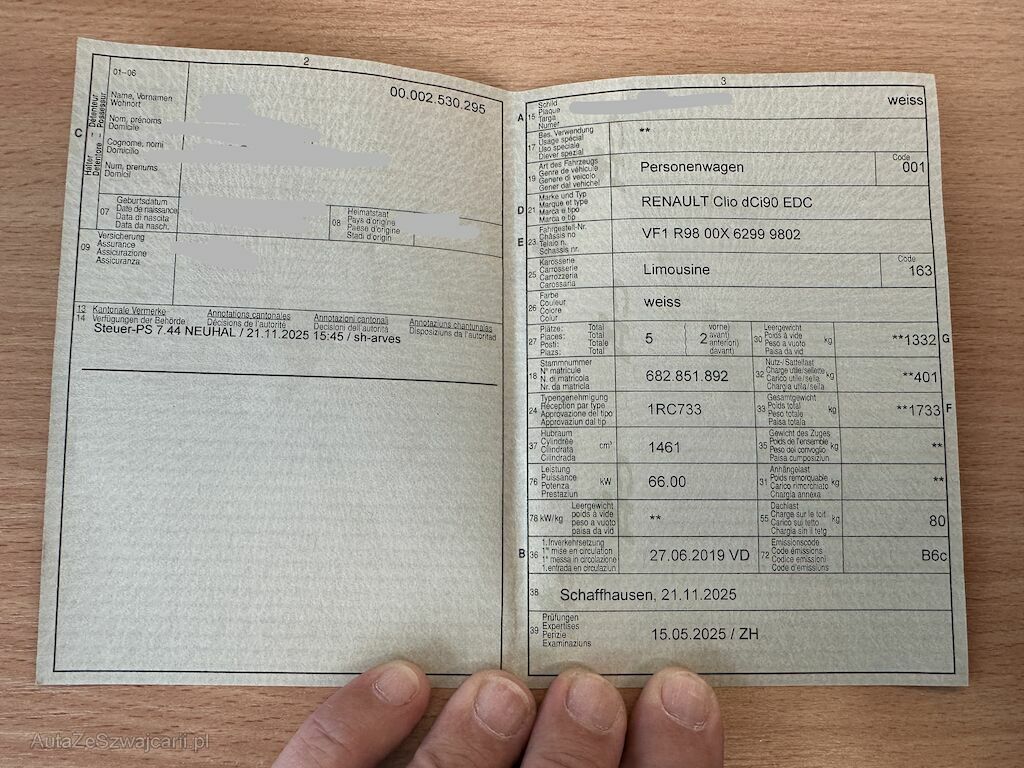 2
01–06
00.002.530.295
C
Halter - Détenteur
Detentore - Possessur
Name, Vornamen
Wohnort
Nom, prénoms
Domicile
Cognome, nomi
Domicilio
Num, prenums
Domicil
07
Geburtsdatum
Date de naissance
Data di nascita
Data da nasch.
08
Heimatstaat
Pays d'origine
Paese d'origine
Stadi d'origin
09
Versicherung
Assurance
Assicurazione
Assicuranza
13 Kantonale Vermerke Annotations cantonales Annotazioni cantonali Annotaziuns chantunalas
14 Verfügungen der Behörde Décisions de l'autorité Decisioni dell'autorità Disposiziuns da l'autoritad
Steuer-PS 7.44 NEUHAL / 21.11.2025 15:45 / sh-arves
3
A 15
Schild
Plaque
Targa
Numer
weiss
17
Bes. Verwendung
Usage spécial
Uso speciale
Diever spezial
**
19
Art des Fahrzeugs
Genre de véhicule
Genere di veicolo
Gener dal vehichel
Personenwagen
Code
001
D 21
Marke und Typ
Marque et type
Marca e tipo
Marca e tip
RENAULT Clio dCi90 EDC
E 23
Fahrgestell-Nr.
Châssis no
Telaio n.
Schassis nr.
VF1 R98 00X 6299 9802
25
Karosserie
Carrosserie
Carrozzeria
Carossaria
Limousine
Code
163
26
Farbe
Couleur
Colore
Colur
weiss
27
Plätze: Total
Places: Total
Posti: Totale
Plazs: Total
5
( 2
vorne)
avant)
anteriori)
davant)
30
Leergewicht
Poids à vide
Peso a vuoto
Paisa da vid
kg
**1332 G
18
Stammnummer
N° matricule
N. di matricola
Nr. da matricla
682.851.892
32
Nutz-/Sattellast
Charge utile/sellette
Carico utile/sella
Chargia utila/sella
kg
**401
24
Typengenehmigung
Réception par type
Approvazione del tipo
Approvaziun dal tip
1RC733
33
Gesamtgewicht
Poids total
Peso totale
Paisa totala
kg
**1733 F
37
Hubraum
Cylindrée
Cilindrata
Cilindrada
cm³
1461
35
Gewicht des Zuges
Poids de l'ensemble
Peso del convoglio
Paisa cumposiziun
kg
**
76
Leistung
Puissance
Potenza
Prestaziun
kW
66.00
31
Anhängelast
Poids remorquable
Carico rimorchiato
Chargia annexa
kg
**
78 kW/kg
Leergewicht
poids à vide
peso a vuoto
paisa da vid
**
55
Dachlast
Charge sur le toit
Carico sul tetto
Chargia sin il tetg
kg
80
B 36
1.Inverkehrsetzung
1re mise en circulation
1a messa in circolazione
1.entrada en circulaziun
27.06.2019 VD
72
Emissionscode
Code émissions
Codice emissioni
Code d'emissions
B6c
38
Schaffhausen, 21.11.2025
39
Prüfungen
Expertises
Perizie
Examinaziuns
15.05.2025 / ZH
AutaZeSzwajcarii.pl